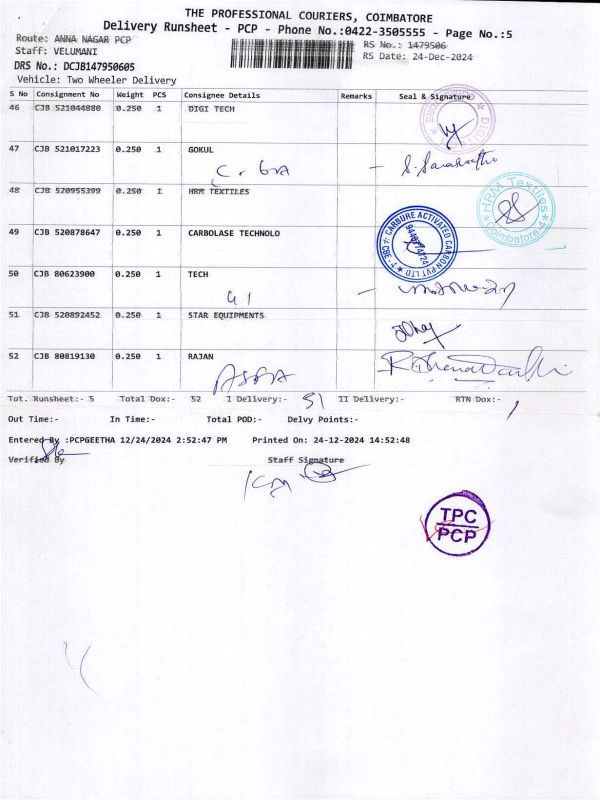 THE PROFESSIONAL COURIERS, COIMBATORE
Delivery Runsheet - PCP - Phone No.:0422-3505555 - Page No.:5
Route: ANNA NAGAR PCP RS No.: 1479506
Staff: VELUMANI RS Date: 24-Dec-2024
DRS No.: DCJB147950605
Vehicle: Two Wheeler Delivery
S No Consignment No Weight PCS Consignee Details Remarks Seal & Signature
46 CJB 521044880 0.250 1 DIGI TECH
47 CJB 521017223 0.250 1 GOKUL
48 CJB 520955399 0.250 1 HRM TEXTILES
HRM Textiles
Coimbatore-4
49 CJB 520878647 0.250 1 CARBOLASE TECHNOLO
CARBURE ACTIVATED CARBON PVT LTD
50 CJB 80623900 0.250 1 TECH
51 CJB 520892452 0.250 1 STAR EQUIPMENTS
52 CJB 80819130 0.250 1 RAJAN
Tot. Runsheet:- 5 Total Dox:- 52 I Delivery:- 51 II Delivery:- RTN Dox:- 1
Out Time:- In Time:- Total POD:- Delvy Points:-
Entered By :PCPGEETHA 12/24/2024 2:52:47 PM Printed On: 24-12-2024 14:52:48
Verified By Staff Signature
TPC
PCP